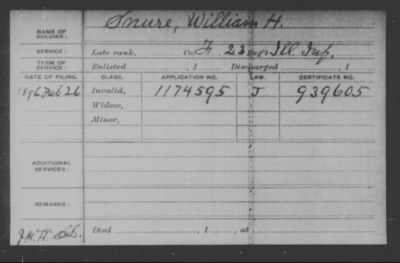 NAME OF SOLDIER: Snure, William H.
SERVICE: Late rank, Co. F, 23 Reg't Ill. Inf.
TERM OF SERVICE: Enlisted , 1 Discharged , 1
DATE OF FILING. CLASS. APPLICATION NO. LAW. CERTIFICATE NO.
1896 Feb 26 Invalid, 1174595 J 939605
Widow,
Minor,
ADDITIONAL SERVICES:
REMARKS:
Died , 1 , at